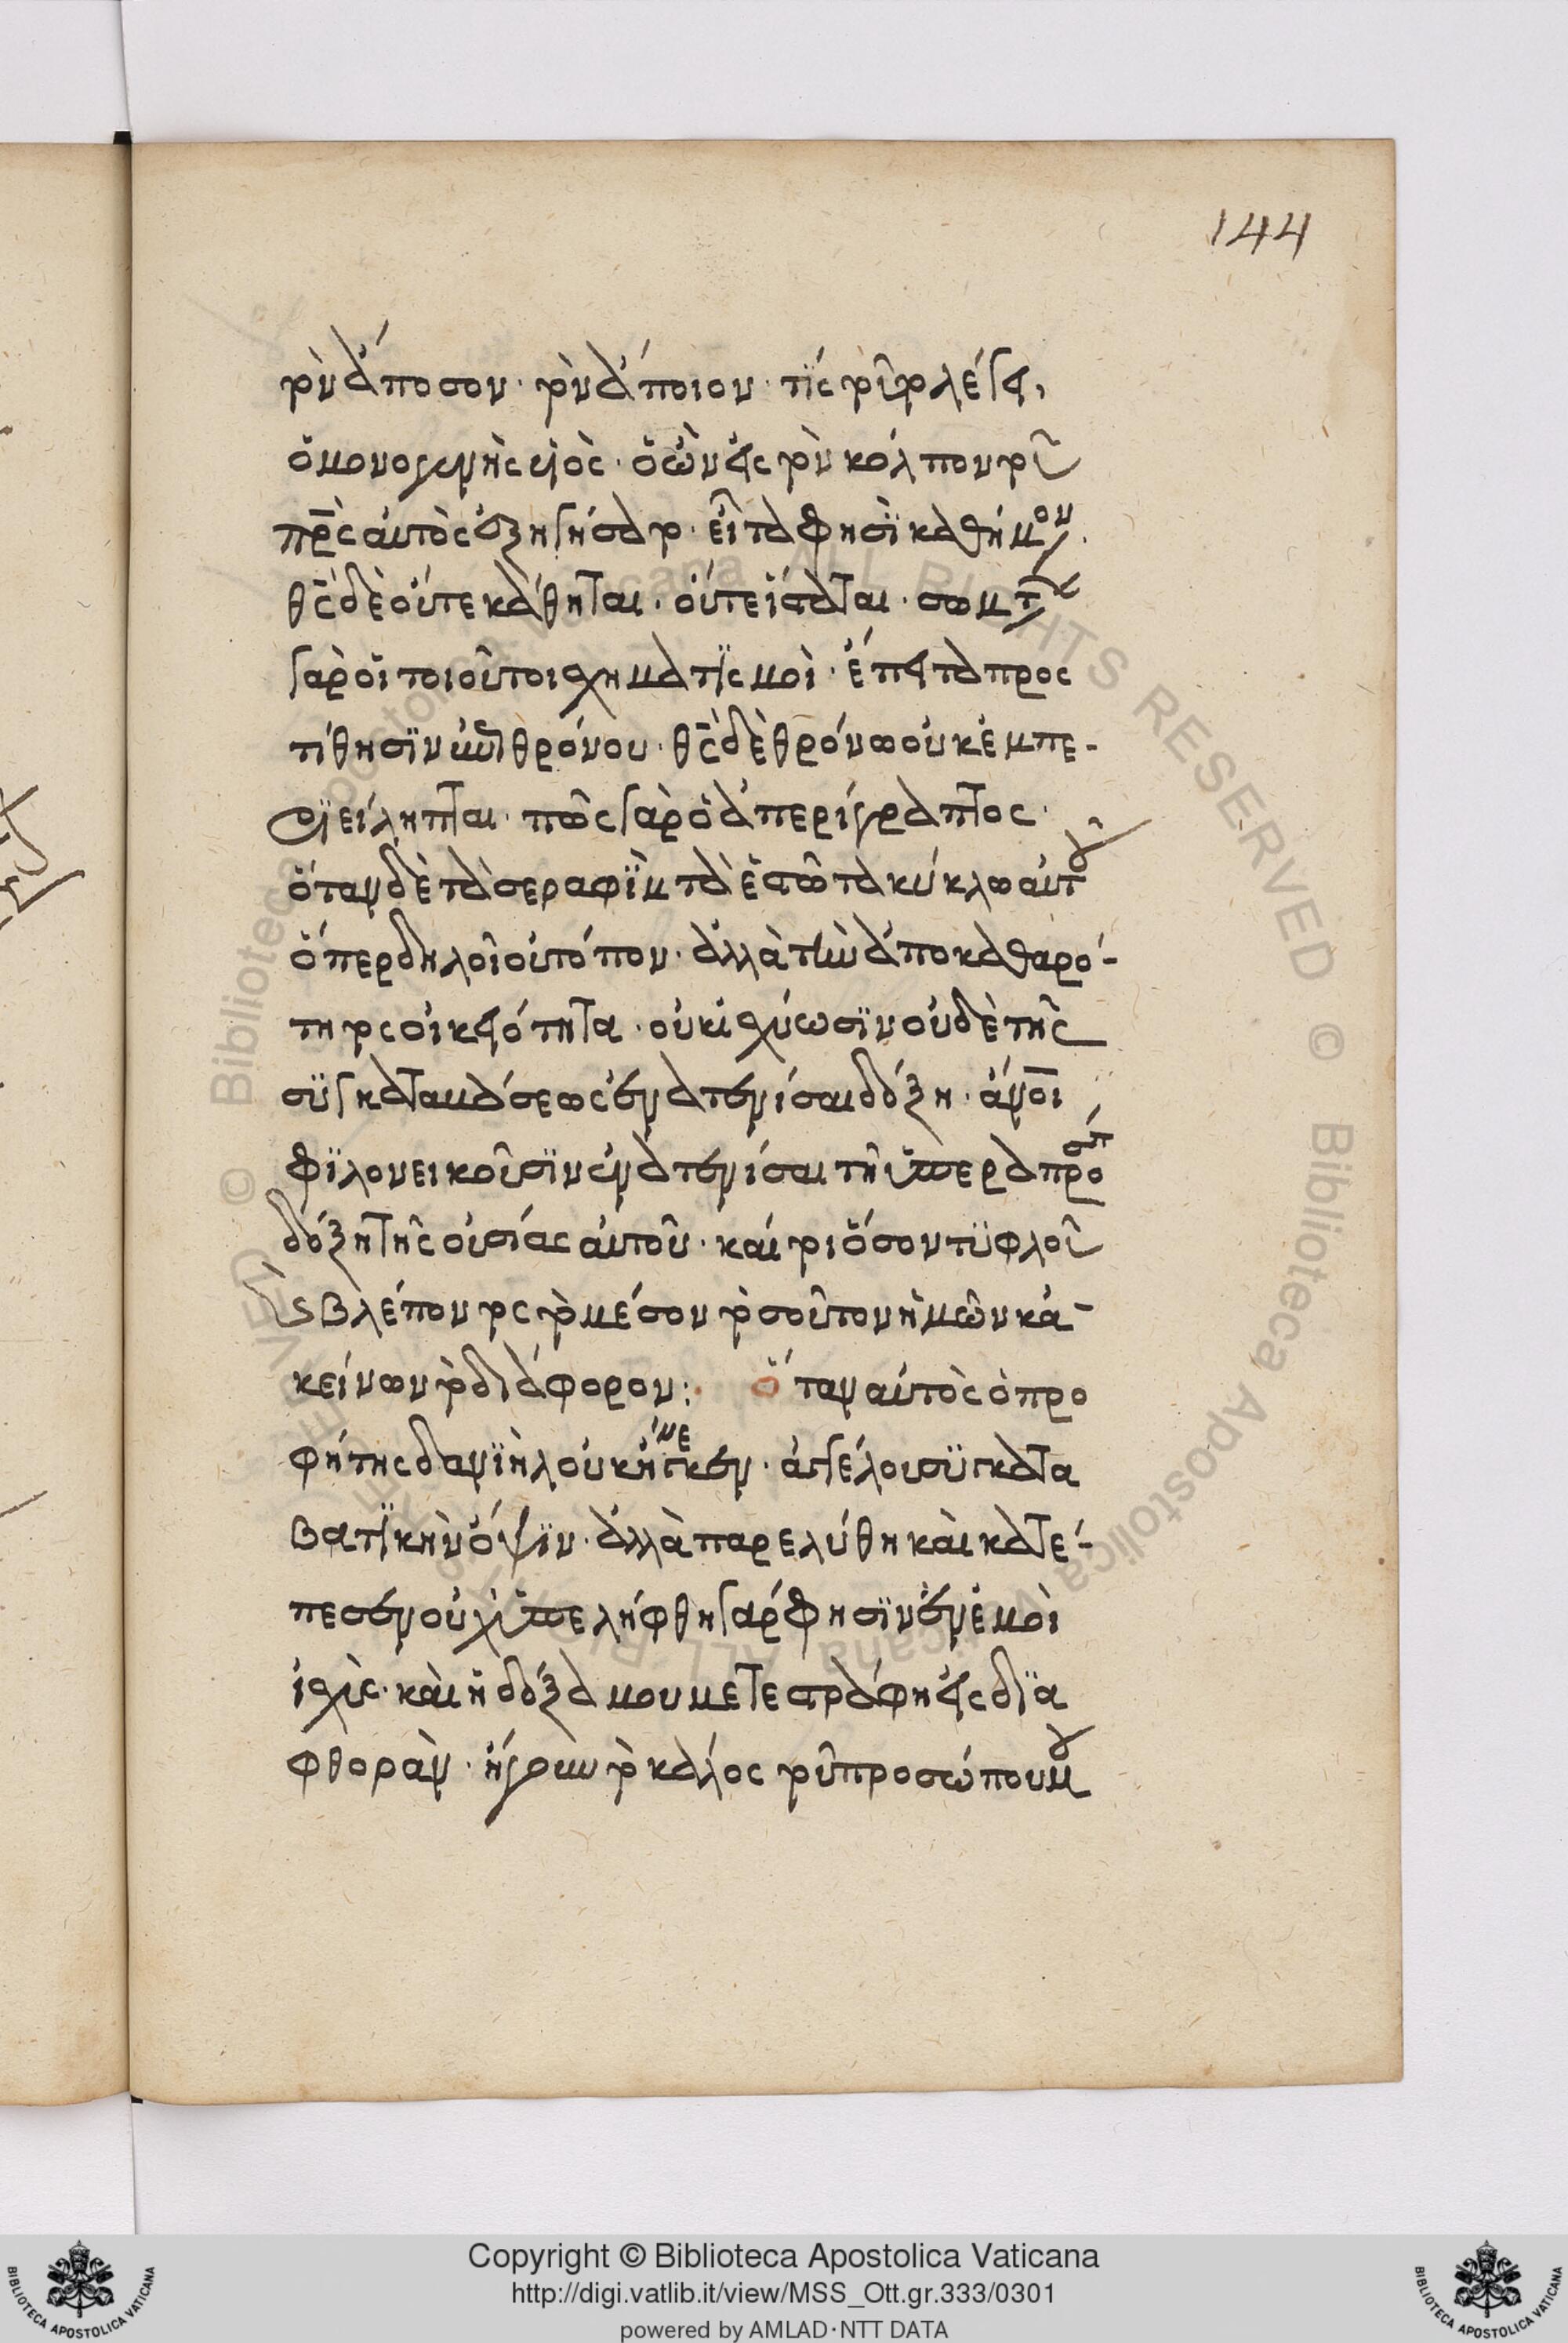 144
τὸν ἄποσον· τὸν ἄποιον· τίς τοῦτο λέγει,
ὁ μονογενὴς υἱὸς· ὁ ὢν εἰς τὸν κόλπον τοῦ
πρ̅ς αὐτὸς ἐξηγήσατο· εἶτα φησὶ καθήμον·
θς̅ δὲ οὔτε κάθηται· οὔτε ἵσταται· σωμτων
γὰρ οἱ τοιοῦτοι σχηματισμοὶ· ἔπειτα προς
τίθησιν ἐπὶ θρόνου· θς̅ δὲ θρόνω οὐκ ἐμπε-
ριείληπται· πῶς γὰρ ὁ ἀπερίγραπτος·
ὅταν δὲ τὰ σεραφὶμ τὰ ἑστῶτα κύκλω αὐτοῦ
ὅπερ δηλοῖ οὐ τόπον· ἀλλὰ τὴν ἀπο καθαρό-
τητος οἰκειότητα· οὐκ ἰσχύωσιν οὐδὲ τῆς
συγκαταβάσεως ἐνατενίσαι δόξη· ἄνοι̅
φιλονεικοῦσιν ἐνατενίσαι τῆ ὑπεραπροσίτ
δόξη τῆς οὐσίας αὐτοῦ· καίτοι ὅσον τυφλοῦ
ϗ βλέποντος τὸ μέσον τοσοῦτον ἡμῶν κἀ-
κείνων τὸ διάφορον:· ὅταν αὐτὸς ὁ προ
φήτης δανιὴλ οὐκ ἤνεγκεν· ἀγγέλου συγκατα
βατικὴν ὄψιν· ἀλλὰ παρελύθη καὶ κατέ-
πεσεν οὐχ ὑπελήφθη γάρ φησιν ἐν ἐμοὶ
ἰσχὺς· καὶ ἡ δόξα μου μετεστράφη εἰς δια
φθοράν· ἤγουν τὸ κάλος τοῦ προσώπου μου
Copyright © Biblioteca Apostolica Vaticana
http://digi.vatlib.it/view/MSS_Ott.gr.333/0301
powered by AMLAD·NTT DATA